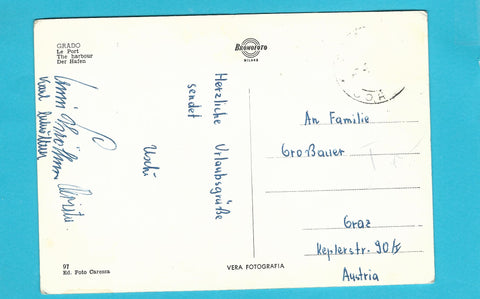 GRADO
Le Port
The harbour
Der Hafen
BROMOFOTO
MILANO
Herzliche Urlaubsgrüße
sendet
Uschi
An Familie
Großauer
Graz
Keplerstr. 90/
Austria
97
Ed. Foto Caressa
VERA FOTOGRAFIA